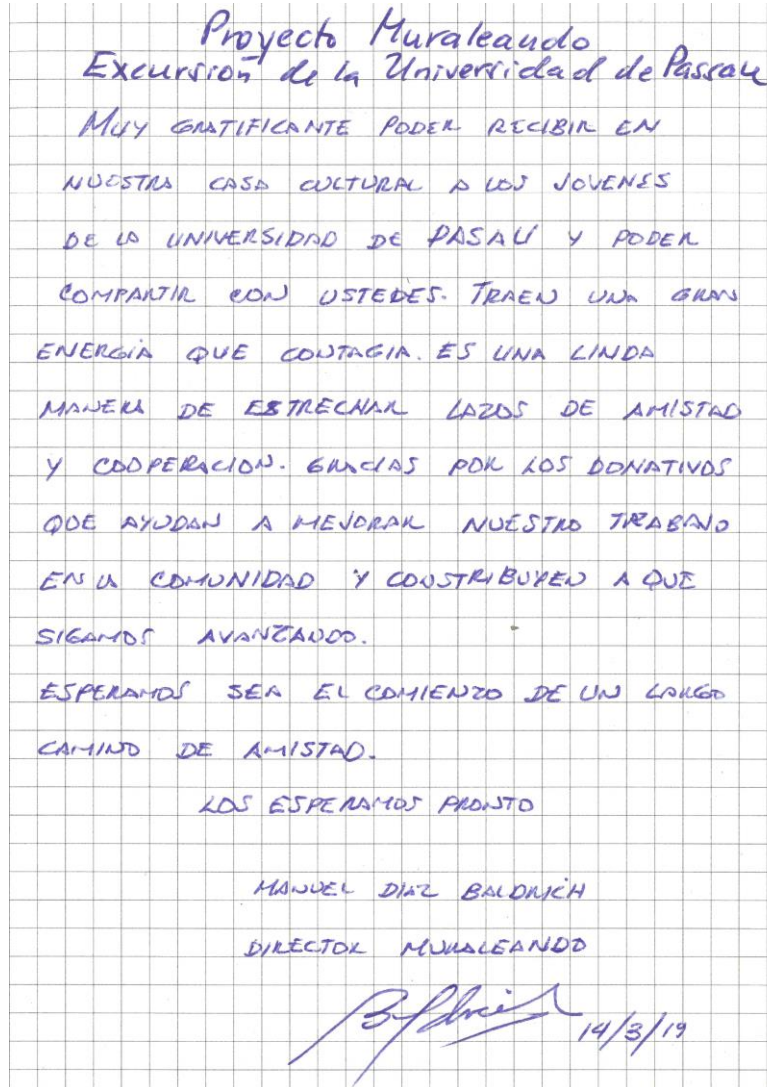 Proyecto Muraleando
Excursión de la Universidad de Passau
MUY GRATIFICANTE PODER RECIBIR EN
NUESTRA CASA CULTURAL A LOS JOVENES
DE LA UNIVERSIDAD DE PASAU Y PODER
COMPARTIR CON USTEDES. TRAEN UNA GRAN
ENERGÍA QUE CONTAGIA. ES UNA LINDA
MANERA DE ESTRECHAR LAZOS DE AMISTAD
Y COOPERACION. GRACIAS POR LOS DONATIVOS
QUE AYUDAN A MEJORAR NUESTRO TRABAJO
EN LA COMUNIDAD Y CONSTRIBUYEN A QUE
SIGAMOS AVANZANDO.
ESPERAMOS SEA EL COMIENZO DE UN LARGO
CAMINO DE AMISTAD.
LOS ESPERAMOS PRONTO
MANUEL DIAZ BALDRICH
DIRECTOR MURALEANDO
14/3/19